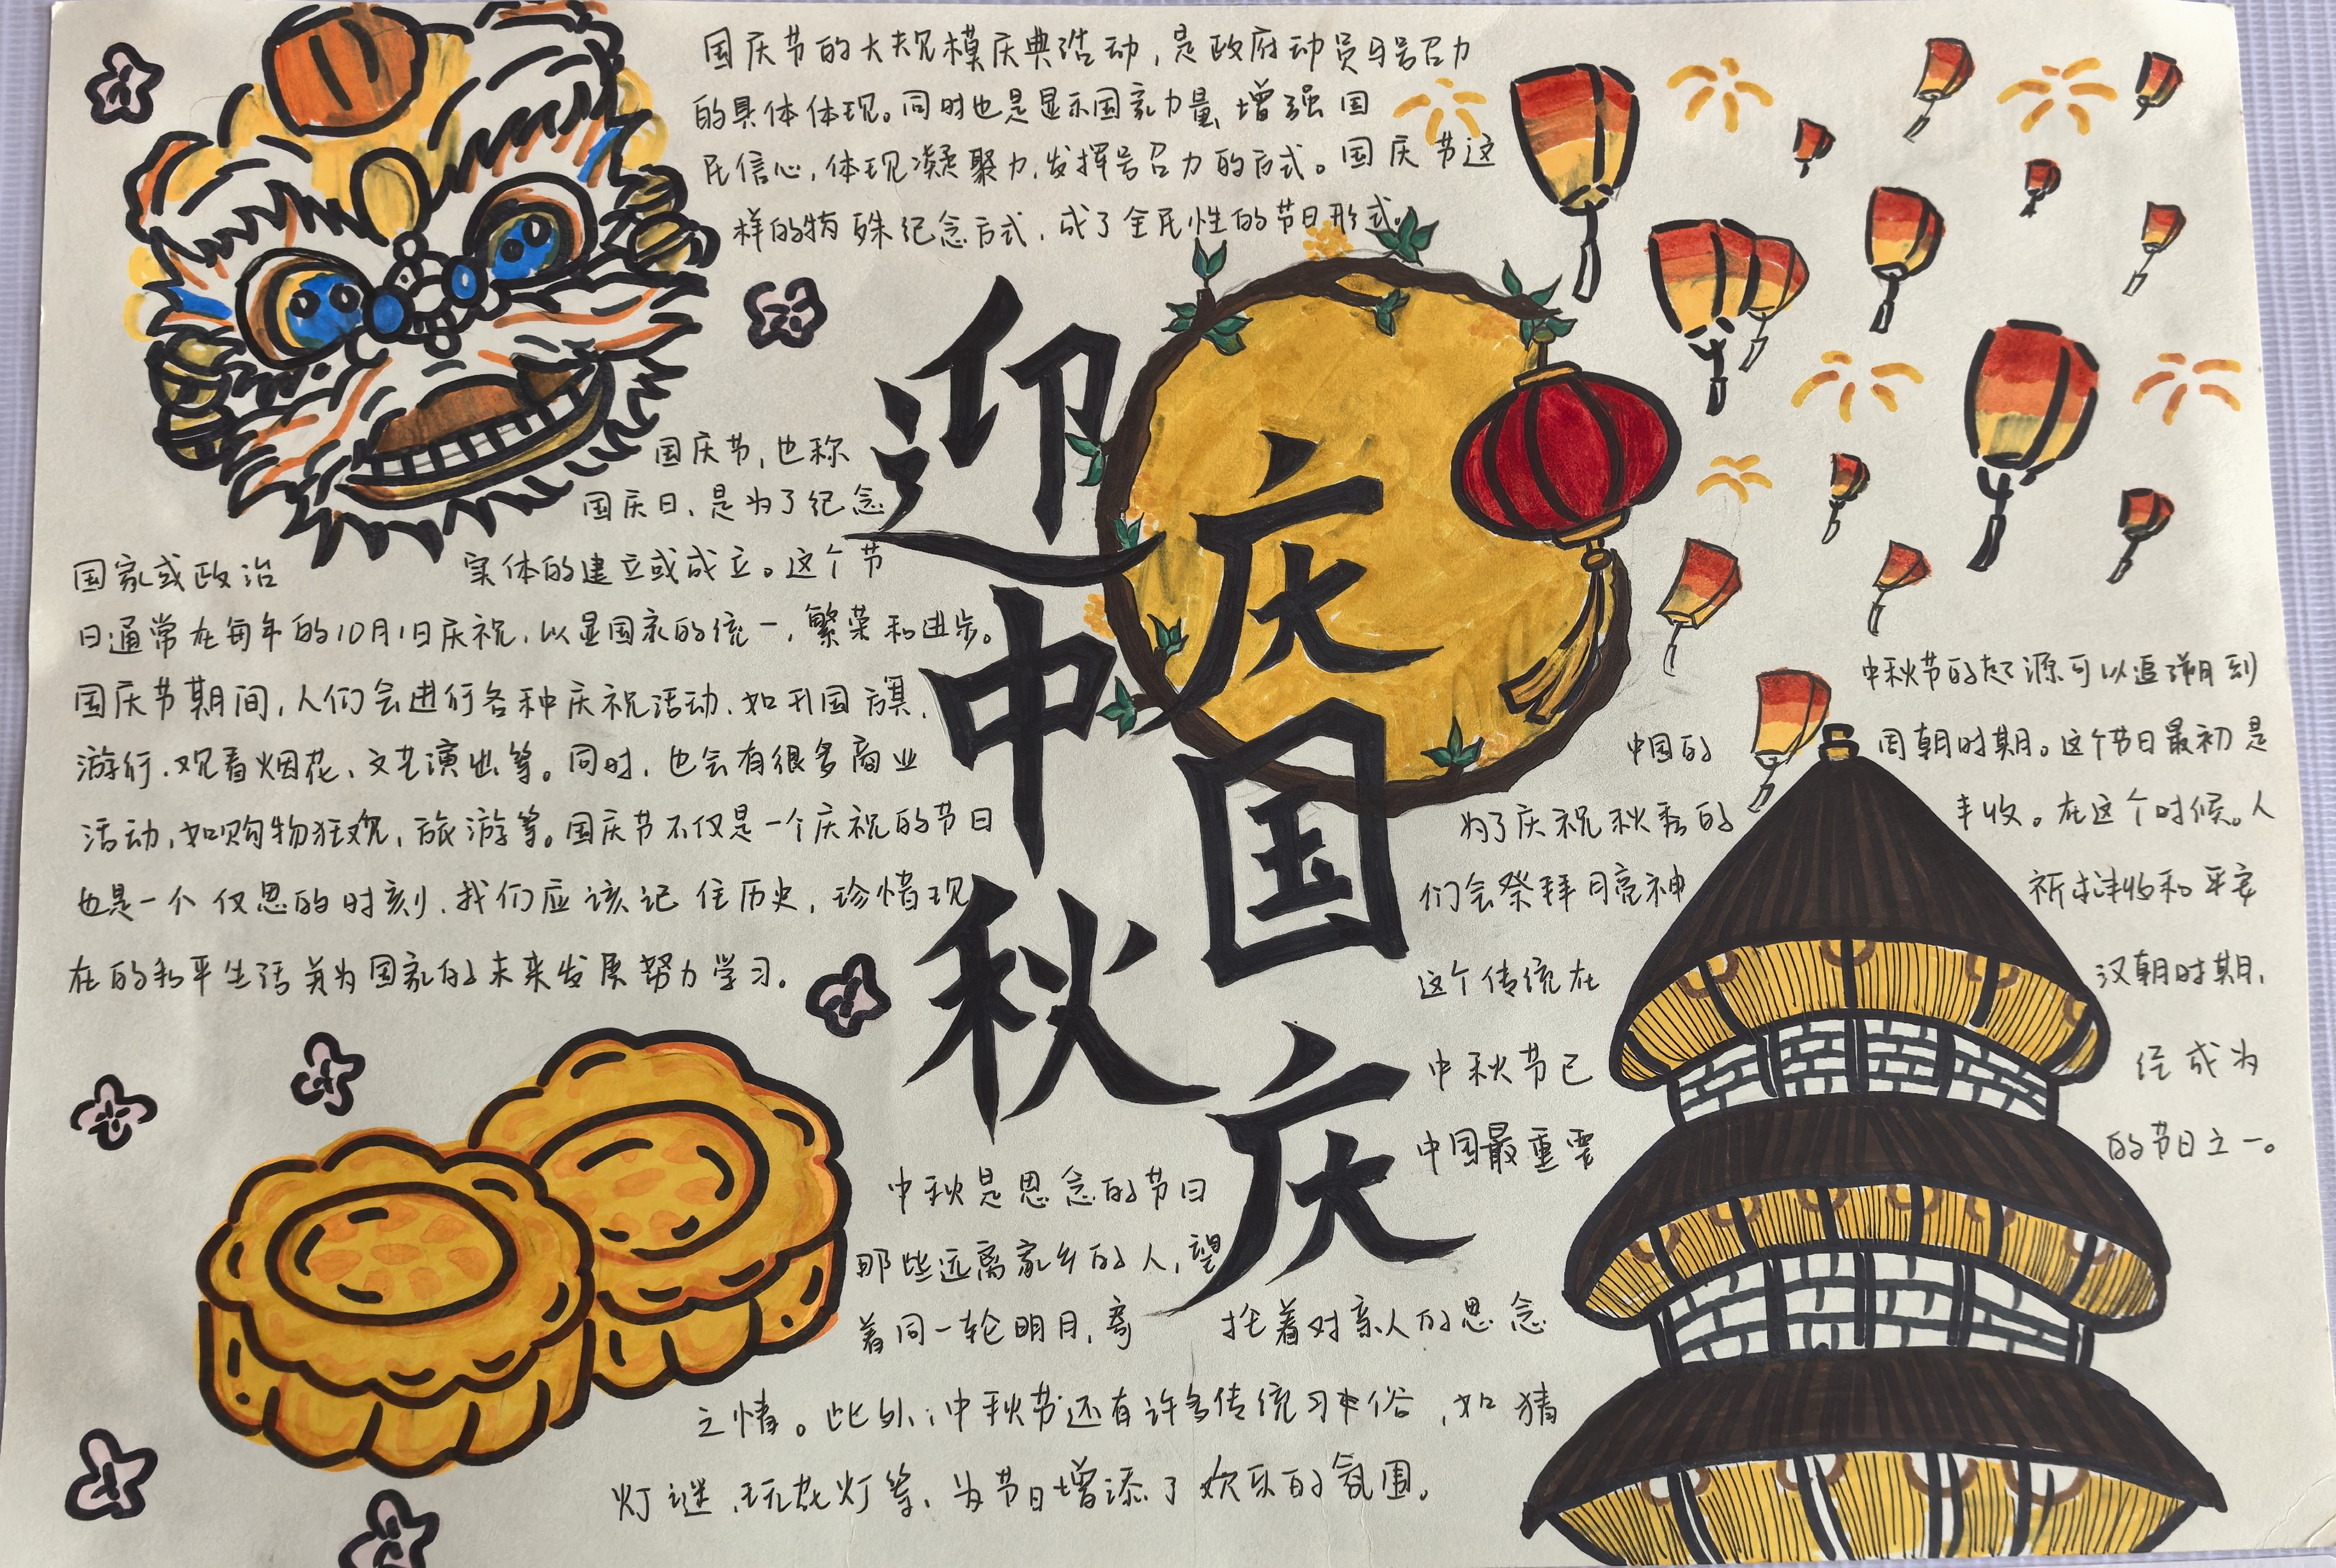 国庆节的大规模庆典活动，是政府动员与号召力
的具体体现。同时也是显示国家力量、增强国
民信心，体现凝聚力，发挥号召力的方式。国庆节这
样的特殊纪念方式，成了全民性的节日形式。
国庆节，也称
国庆日，是为了纪念
国家或政治 实体的建立或成立。这个节
日通常在每年的10月1日庆祝，以显国家的统一，繁荣和进步。
国庆节期间，人们会进行各种庆祝活动，如升国旗，
游行，观看烟花、文艺演出等。同时，也会有很多商业
活动，如购物狂欢，旅游等。国庆节不仅是一个庆祝的节日
也是一个仅思的时刻，我们应该记住历史，珍惜现
在的和平生活并为国家的未来发展努力学习。
迎中秋
庆国庆
中秋节的起源可以追溯到
中国的 周朝时期。这个节日最初是
为了庆祝秋季的 丰收。在这个时候。人
们会祭拜月亮神 祈求丰收和平安
这个传统在 汉朝时期，
中秋节已 经成为
中国最重要 的节日之一。
中秋是思念的节日
那些远离家乡的人，望
着同一轮明月，寄 托着对亲人的思念
之情。此外，中秋节还有许多传统习俗，如猜
灯谜，玩花灯等，为节日增添了欢乐的氛围。